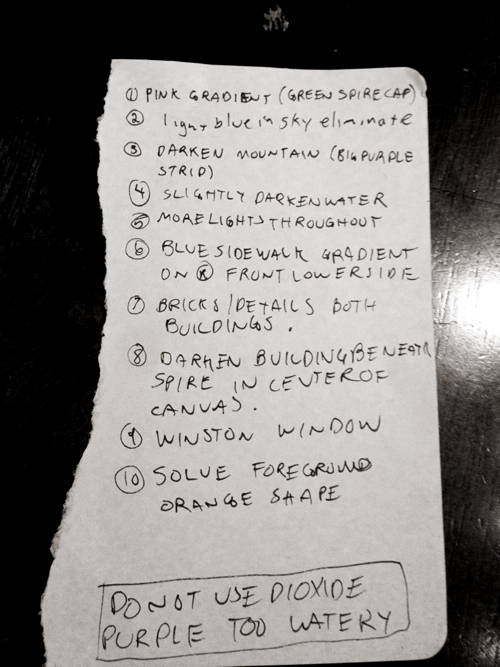 ① PINK GRADIENT (GREEN SPIRE CAP)
② light blue in sky eliminate
③ DARKEN MOUNTAIN (BIG PURPLE
STRIP)
④ SLIGHTLY DARKEN WATER
⑤ MORE LIGHTS THROUGHOUT
⑥ BLUE SIDEWALK GRADIENT
ON Ⓡ FRONT LOWER SIDE
⑦ BRICKS/DETAILS BOTH
BUILDINGS.
⑧ DARKEN BUILDING BENEATH
SPIRE IN CENTER OF
CANVAS.
⑨ WINSTON WINDOW
⑩ SOLVE FOREGROUND
ORANGE SHAPE
DO NOT USE DIOXIDE
PURPLE TOO WATERY